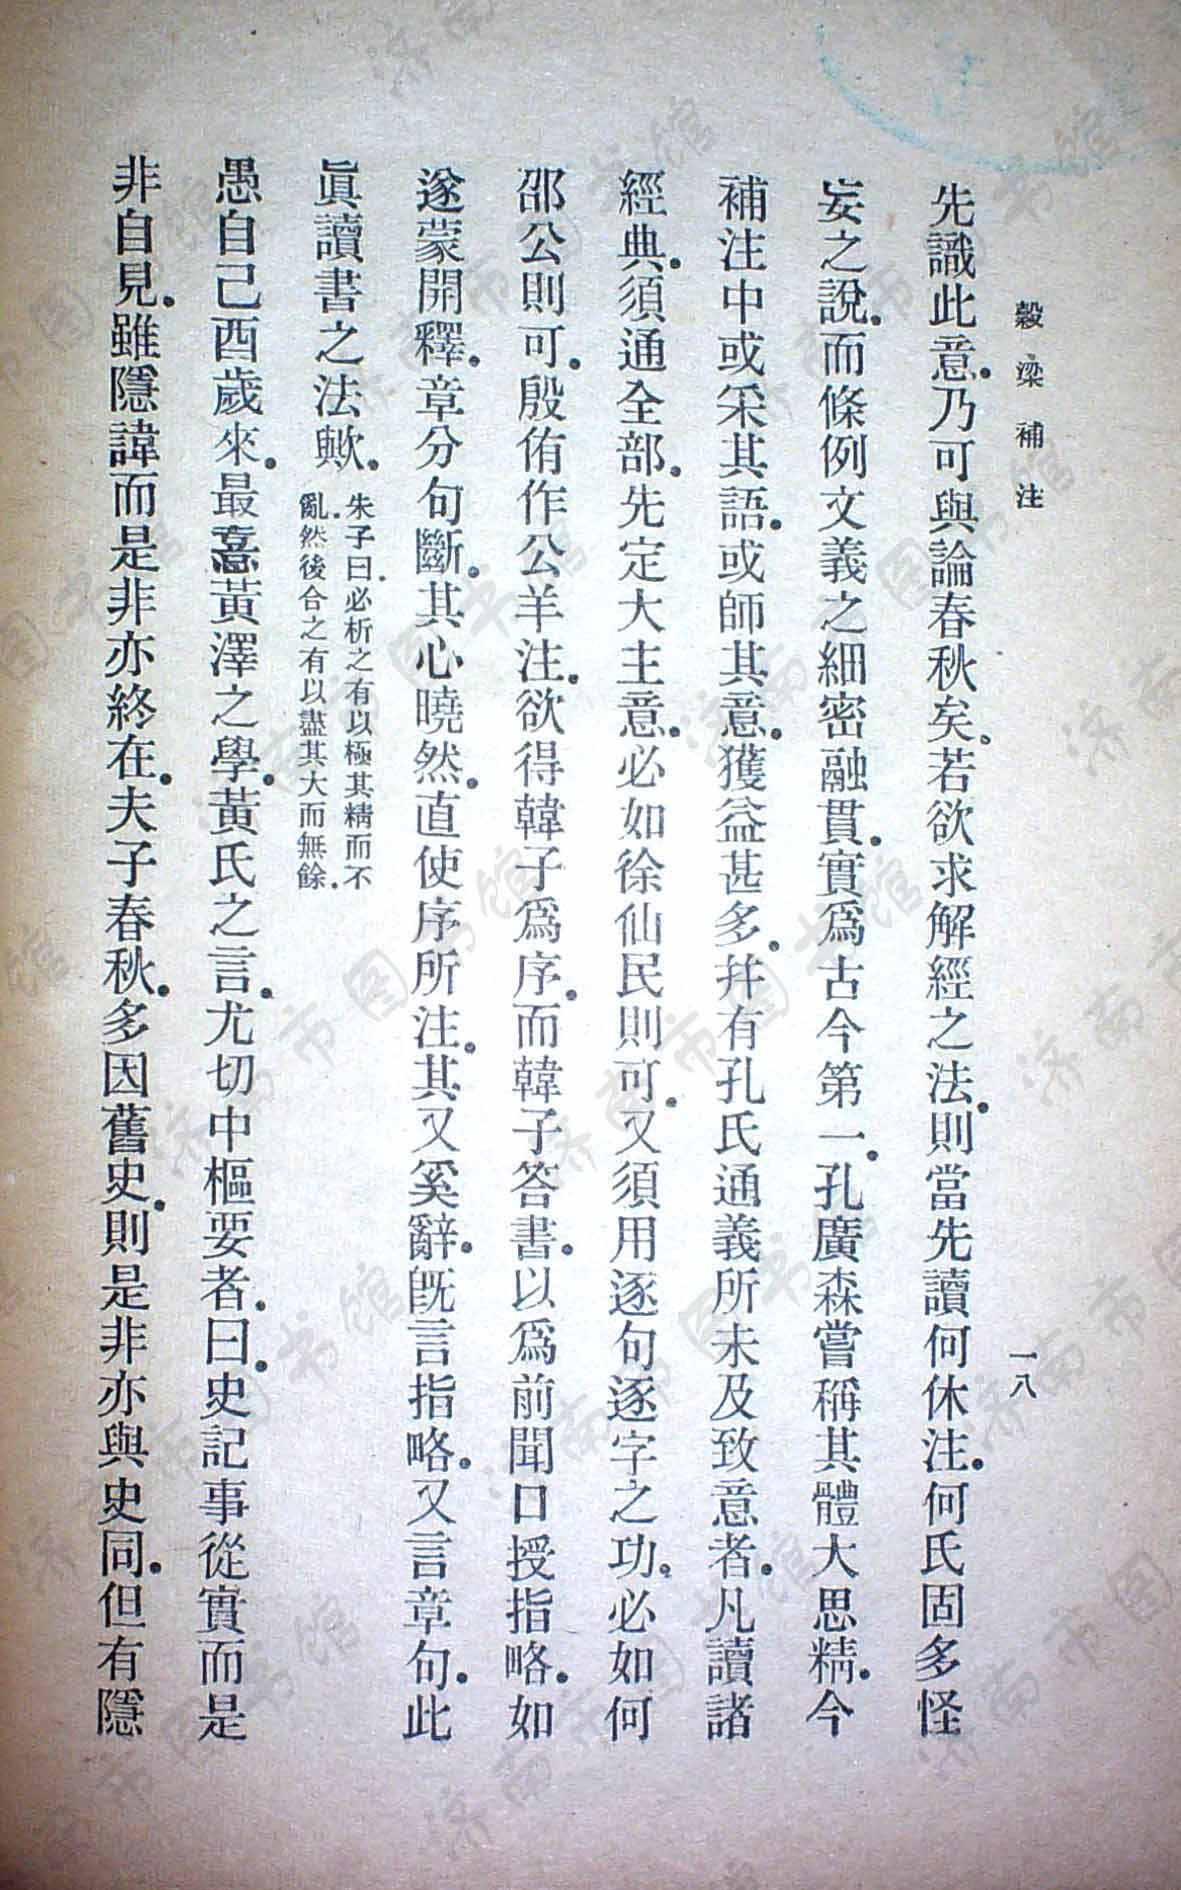 穀梁補注
一八
先識此意.乃可與論春秋矣.若欲求解經之法.則當先讀何休注.何氏固多怪
妄之說.而條例文義之細密融貫.實爲古今第一.孔廣森嘗稱其體大思精.今
補注中或采其語.或師其意.獲益甚多.并有孔氏通義所未及致意者.凡讀諸
經典.須通全部.先定大主意.必如徐仙民則可.又須用逐句逐字之功.必如何
邵公則可.殷侑作公羊注.欲得韓子爲序.而韓子答書.以爲前聞口授指略.如
遂蒙開釋.章分句斷.其心曉然.直使序所注.其又奚辭.旣言指略.又言章句.此
眞讀書之法歟.
朱子曰.必析之有以極其精而不
亂.然後合之有以盡其大而無餘.
愚自己酉歲來.最憙黃澤之學.黃氏之言.尤切中樞要者.曰.史記事從實而是
非自見.雖隱諱而是非亦終在.夫子春秋.多因舊史.則是非亦與史同.但有隱
濟南市图书馆